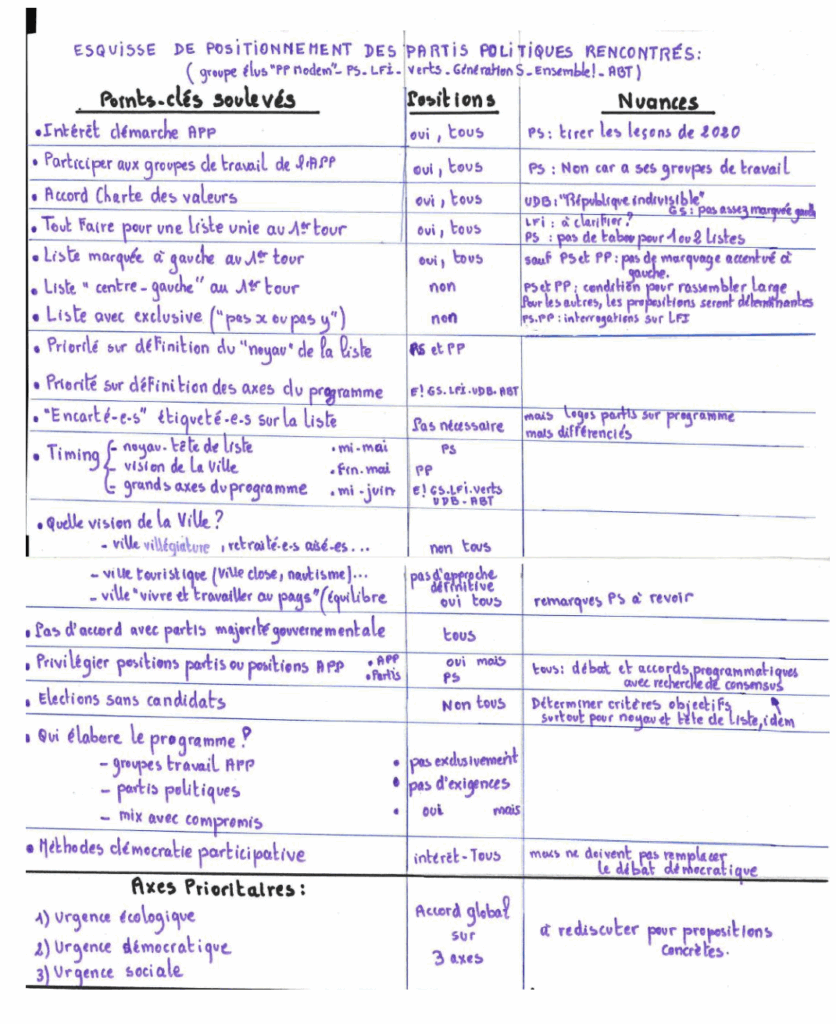 ESQUISSE DE POSITIONNEMENT DES PARTIS POLITIQUES RENCONTRÉS:
( groupe élus "PP Modem"- PS- LFi- Verts - Génération S - Ensemble! - ABT )
Points-clés soulevés Positions Nuances
• Intérêt démarche APP oui, tous PS: tirer les leçons de 2020
• Participer aux groupes de travail de l'APP oui, tous PS : Non car a ses groupes de travail
• Accord Charte des valeurs oui, tous UDB: "République indivisible"
GS: pas assez marquée gauche
• Tout faire pour une liste unie au 1er tour oui, tous LFi : à clarifier ?
PS : pas de tabou pour 1 ou 2 listes
• Liste marquée à gauche au 1er tour oui, tous sauf PS et PP: pas de marquage accentué à
gauche.
• Liste "centre-gauche" au 1er tour non PS et PP: condition pour rassembler large
Pour les autres, les propositions seront déterminantes
• Liste avec exclusive ("pas x ou pas y") non PS.PP: interrogations sur LFI
• Priorité sur définition du "noyau" de la liste PS et PP
• Priorité sur définition des axes du programme E! GS. LFi. UDB- ABT
• "Encarté-e-s" étiqueté-e-s sur la liste Pas nécessaire mais logos partis sur programme
mais différenciés
• Timing - noyau-tête de liste • mi-mai PS
- vision de la Ville • fin.mai PP
- grands axes du programme • mi-juin E! GS.LFi.Verts
UDB - ABT
• Quelle vision de la Ville ?
- ville villégiature, retraité-e-s aisé-es... non tous
- ville touristique (Ville close, nautisme)... pas d'approche
définitive
- ville "vivre et travailler au pays" (équilibre oui tous remarques PS à revoir
• Pas d'accord avec partis majorité gouvernementale tous
• Privilégier positions partis ou positions APP • APP oui mais tous: débat et accords programmatiques
• Partis PS avec recherche de consensus
• Elections sans candidats Non tous Déterminer critères objectifs
surtout pour noyau et tête de liste, idem
• Qui élabore le programme ?
- groupes travail APP • pas exclusivement
- partis politiques • pas d'exigences
- mix avec compromis • oui mais
• Méthodes démocratie participative intérêt-Tous mais ne doivent pas remplacer
le débat démocratique
Axes Prioritaires :
1) Urgence écologique Accord global
sur à rediscuter pour propositions
2) Urgence démocratique 3 axes concrètes.
3) Urgence sociale